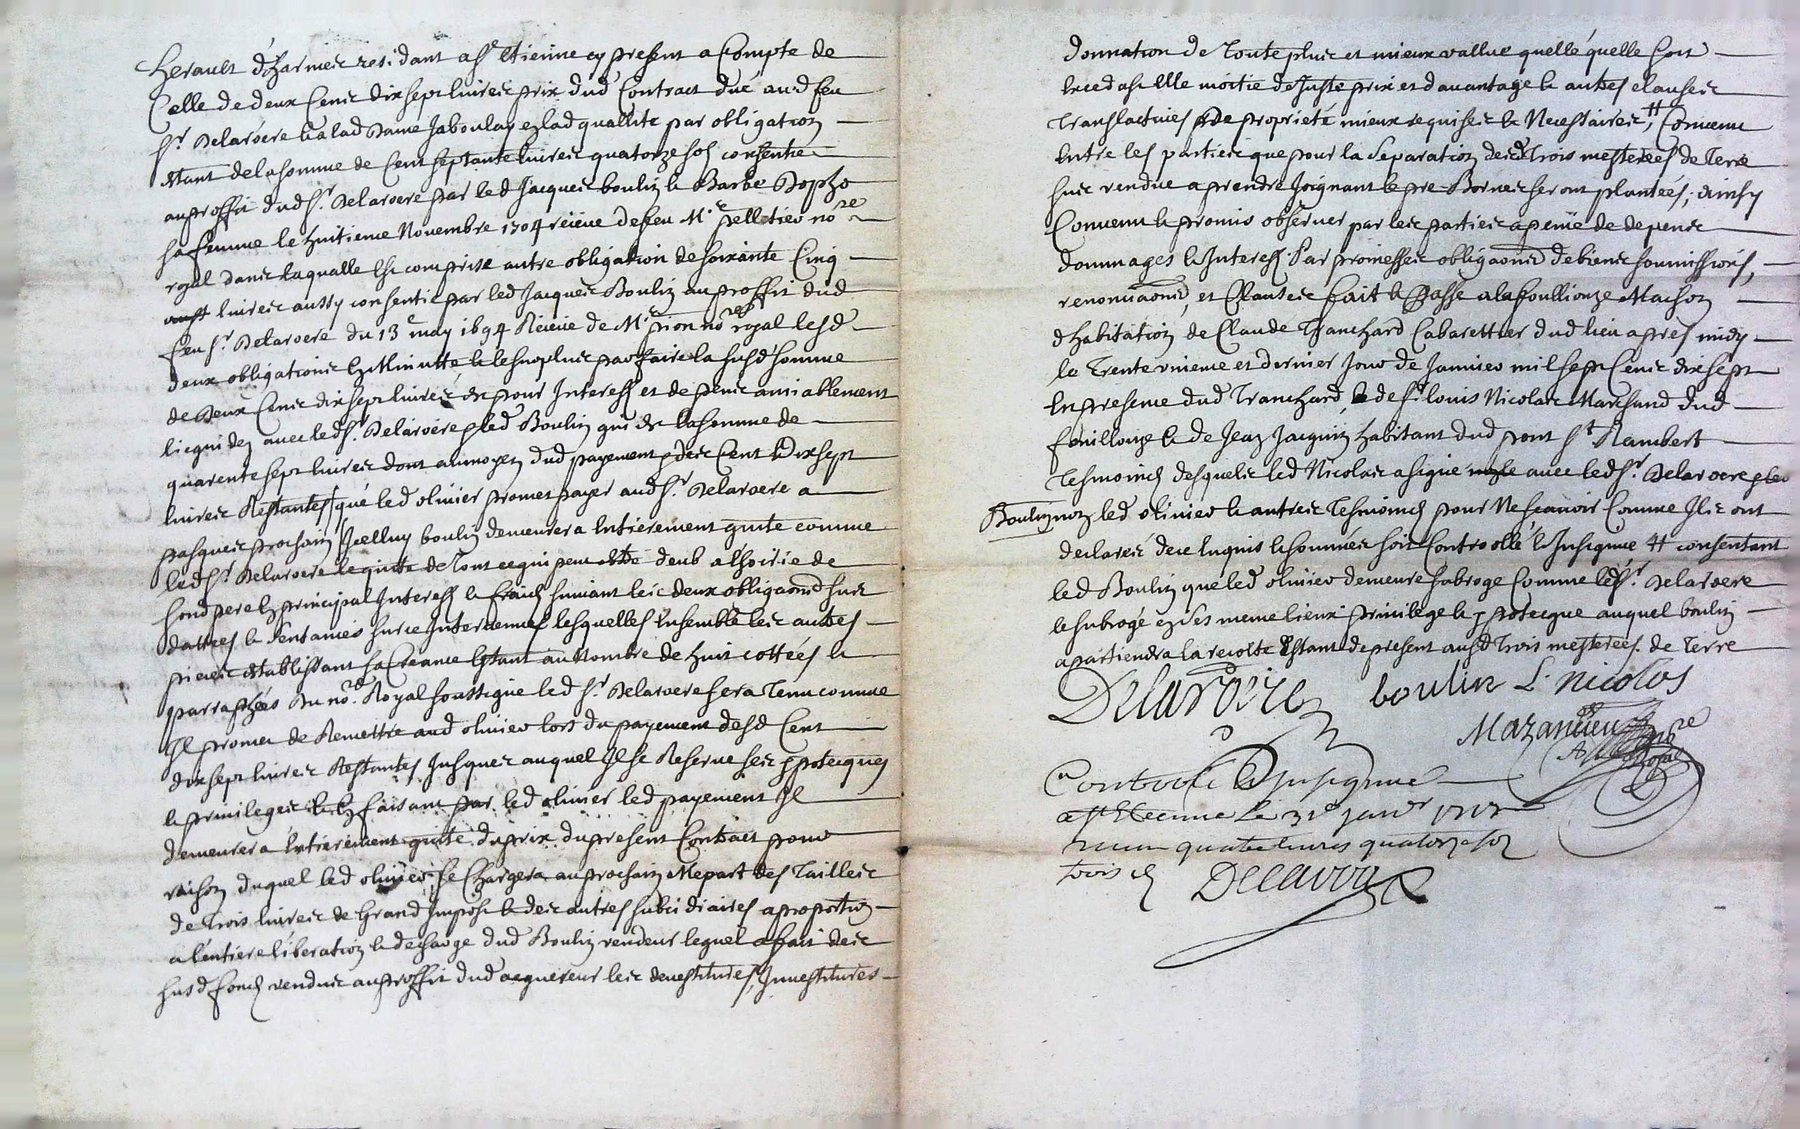 herault d'harmes residant a St Etienne cy present a Compte de
Celle de deux Cens dix sept livres prix dud Contract due aud feu
Sr Delaroere & a lad Dame Jaboulay ez lad quallité par obligation
Estant de la somme de Cent septante livres quatorze sols consentie
au proffit dud Sr Delaroere par led Jacques boulin & Barbe
sa femme le huitieme Novembre 1704 reçeue de feu Mr pelletier nore
royal dans laqualle est comprise autre obligation de soixante Cinq
livres aussy consentie par led Jacques Boulin au proffit dud
feu Sr Delaroere du 13e may 1694 Receue de Me pion nore royal lesd
deux obligations En Minutte & le surplus par faire la susd somme
de Deux Cens dix sept livres est pour Interest et depens amiablement
licquidez avec led Sr Delaroere & led Boulin qui est la somme de
quarente sept livres dont au moyen dud payement & des Cent dix sept
livres Restantes que led olivier promet payer aud Sr Delaroere a
pasques prochain Icelluy boulin demeurera Entierement quite comme
led Sr Delaroere le quite de Tout ce qui peut estre deub a l'hoirie de
sond pere En principal Interest & fraicts suivant les deux obligaons sus
dattées & Sentances sur ce Intervenues lesquelles Ensemble les autres
pieces establissant sa Creance Estant au Nombre de huit cottées &
parraphées Du nore Royal soussigné led Sr Delaroere sera Tenu comme
Il promet de Remettre aud olivier lors du payement desd Cent
dix sept livres Restantes Jusques auquel Il se Reserve ses ypotecques
& privileges & En faisant par led olivier led payement Il
demeurera Entierement quite du prix du present Contract pour
raison duquel led olivier se Chargera au prochain Mepart des Tailles
de Trois livres de Grand Impost & des autres subcidiaires a proportion
a l'entiere liberation & descharge dud Boulin vendeur lequel a fait des
susd fonds vendus au proffit dud acquereur les devestitures, Investitures
donnation de Toute plus et mieux vallue quelle quelle soit
Excedast Elle moitié de Juste prix et davantage & autres clauses
Translatives de proprieté mieux requises & Necessaires, # Convenu
Entre les parties que pour la separation desd Trois mesterées de Terre
sus vendue a prendre Joignant le pré Bornes seront plantées; ainsy
Convenu & promis observer par les parties a peine de depens
dommages & Interest Par promesses obligaons de biens soumissions,
renontiaons, et Clauses fait & Passé a la foullouze Maison
d'habitation de Claude Tranchard Cabarettier dud lieu apres midy
le Trente unieme et dernier Jour de Janvier mil sept Cens dix sept
En presence dud Tranchard, de Sr louis Nicolas Marchand dud
foüillouze & de Jean Jacquin habitant dud pont St Rambert
Tesmoins desquels led Nicolas a signé avec led Sr Delaroere & led
Boulin non led olivier & autres Tesmoins pour Ne scavoir Comme Ils ont
declarés de ce Enquis & sommés soit Controollé & Insignué # consentant
led Boulin que led olivier demeure subrogé Comme led Sr Delaroere
le subrogé ez ses meme lieux privilege & ypotecque auquel boulin
apartiendra la recolte Estant de present ausd Trois mesterées de Terre
Delaroëre boulin L. nicolas
Mazandieu
nore Royal
Controllé & Insignué
a St Etienne le 31e janer 1717
quatre livres quatorze sols
trois d
Delavou